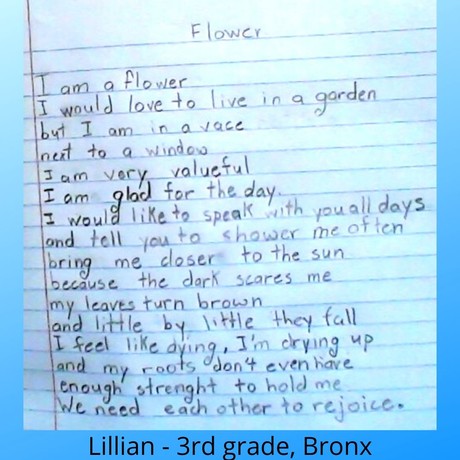 Flower
I am a flower
I would love to live in a garden
but I am in a vace
next to a window
I am very valueful
I am glad for the day.
I would like to speak with you all days
and tell you to shower me often
bring me closer to the sun
because the dark scares me
my leaves turn brown
and little by little they fall
I feel like dying, I'm drying up
and my roots don't even have
enough strenght to hold me
We need each other to rejoice.
Lillian - 3rd grade, Bronx